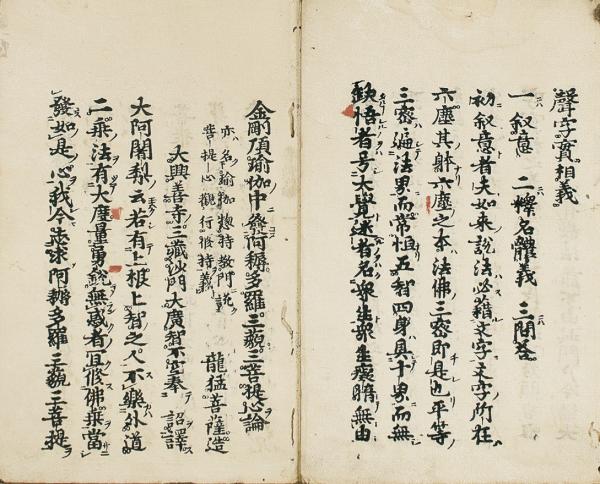 聲字實相義
一叙意 二釋名體義 三問答
初叙意者夫如来說法必藉文字文字所在
六塵其躰六塵之本法佛三密即是也平等
三密遍法界而常恒五智四身具十界而無
缺悟者号大覺迷者名衆生衆生癡暗無由
金剛頂瑜伽中發阿耨多羅三藐三菩提心論
亦名瑜伽惣持教門説
菩提心觀行修持義
龍猛菩薩造
大興善寺三藏沙門大廣智不空奉 詔譯
大阿闍梨云若有上根上智之人不樂外道
二乘法有大度量勇銳無惑者宜修佛乘當
發如是心我今志求阿耨多羅三藐三菩提